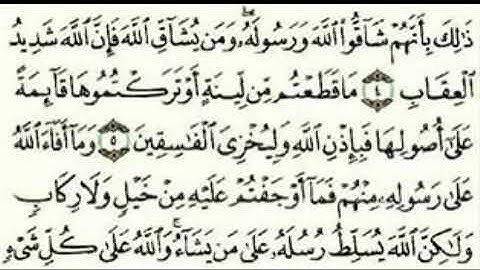 ذَٰلِكَ بِأَنَّهُمْ شَاقُّوا۟ ٱللَّهَ وَرَسُولَهُۥ ۖ وَمَن يُشَآقِّ ٱللَّهَ فَإِنَّ ٱللَّهَ شَدِيدُ
ٱلْعِقَابِ ٤ مَا قَطَعْتُم مِّن لِّينَةٍ أَوْ تَرَكْتُمُوهَا قَآئِمَةً
عَلَىٰٓ أُصُولِهَا فَبِإِذْنِ ٱللَّهِ وَلِيُخْزِىَ ٱلْفَٰسِقِينَ ٥ وَمَآ أَفَآءَ ٱللَّهُ
عَلَىٰ رَسُولِهِۦ مِنْهُمْ فَمَآ أَوْجَفْتُمْ عَلَيْهِ مِنْ خَيْلٍ وَلَا رِكَابٍ
وَلَٰكِنَّ ٱللَّهَ يُسَلِّطُ رُسُلَهُۥ عَلَىٰ مَن يَشَآءُ ۚ وَٱللَّهُ عَلَىٰ كُلِّ شَىْءٍ